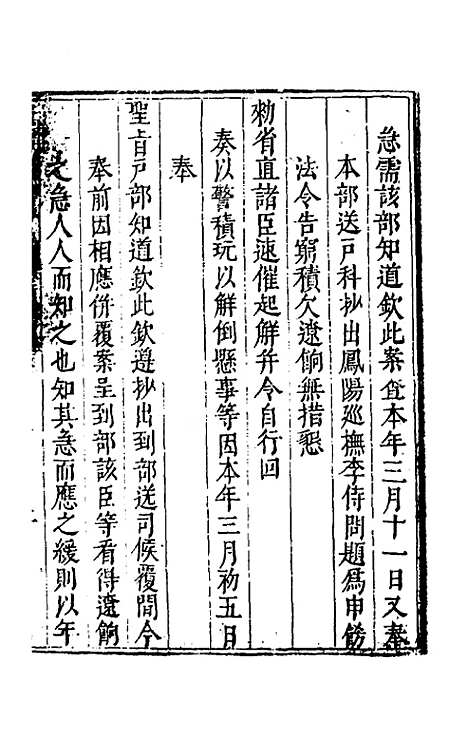 急需該部知道欽此案查本年三月十一日又奉
本部送戶科抄出鳳陽廵撫李侍問題爲申飭
法令告窮積欠遼餉無措懇
勑省直諸臣速催起解并令自行回
奏以警積玩以解倒懸事等因本年三月初五日
奉
聖旨戶部知道欽此欽遵抄出到部送司候覆間今
奉前因相應併覆案呈到部該臣等看得遼餉
之急人人而知之也知其急而應之緩則以年